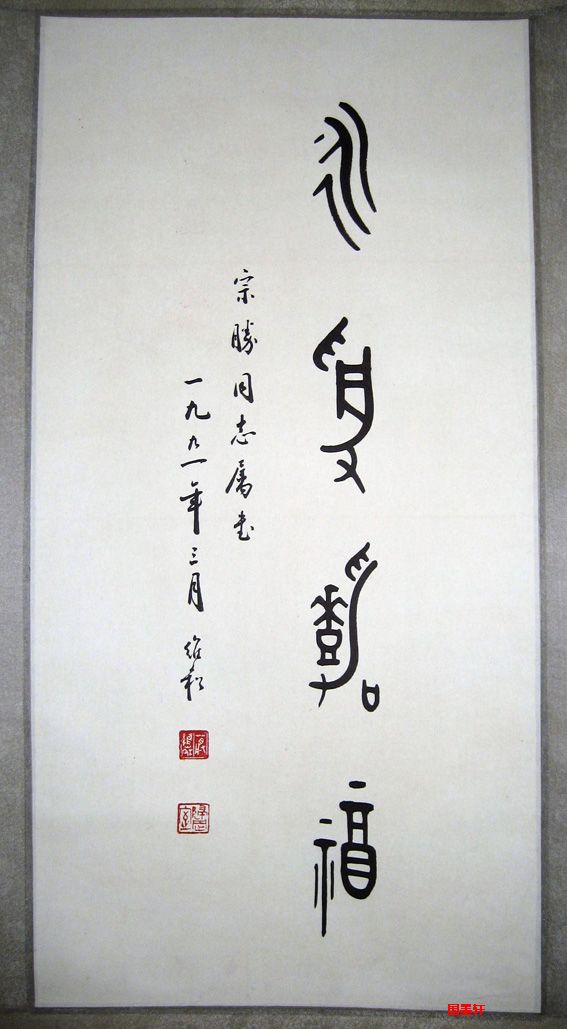 永受嘉福
宗勝同志属书
一九九一年三月
国美轩